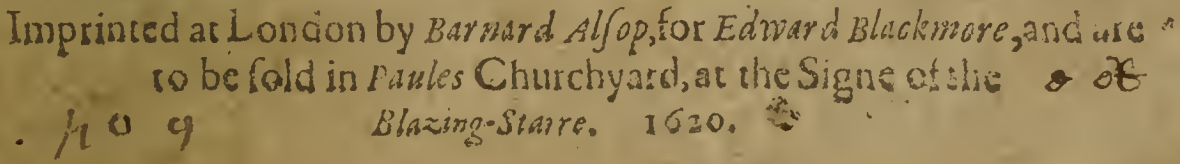 Imprinted at London by Barnard Alſop, for Edward Blackmore, and are
to be ſold in Paules Churchyard, at the Signe of the
Blazing-Starre. 1620.